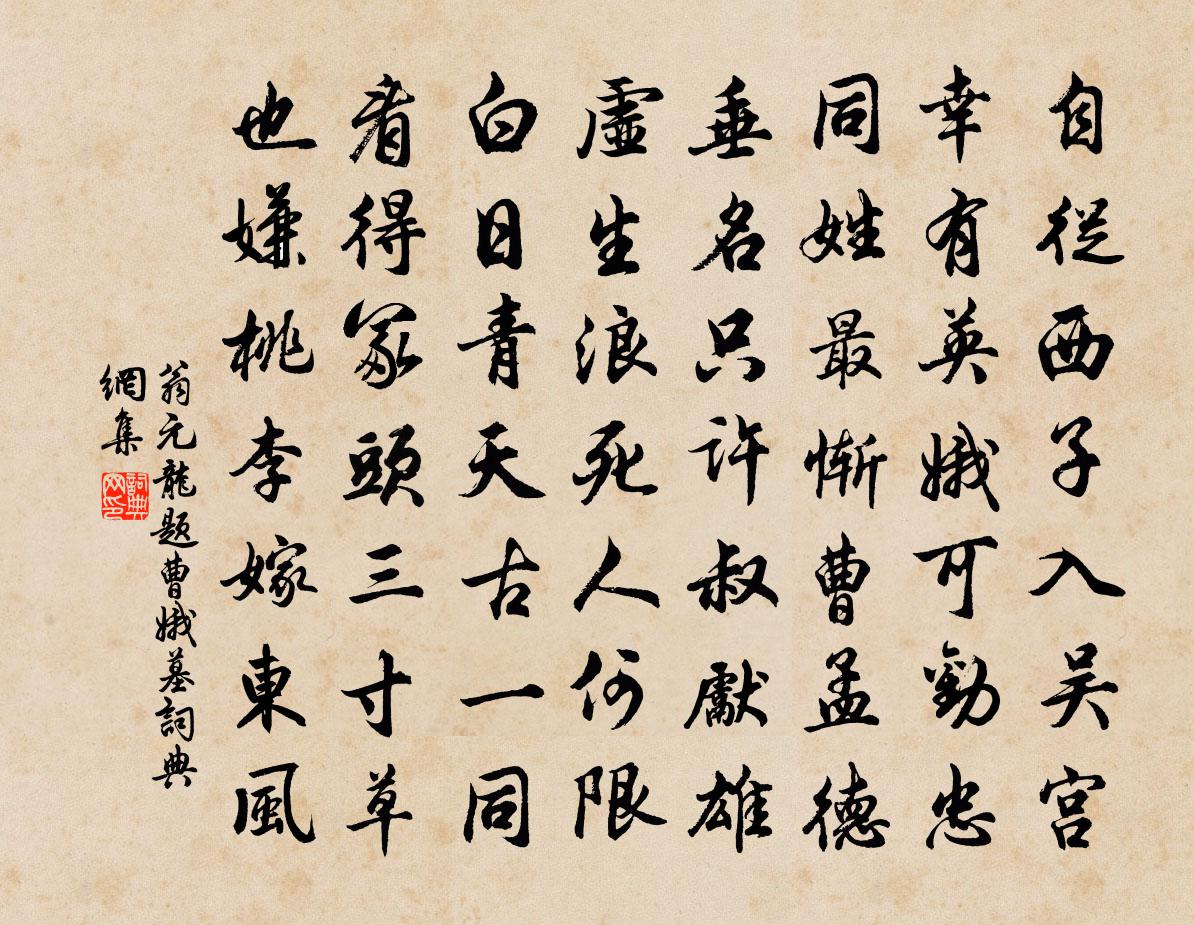 自從西子入吴宫
幸有英娥可勸忠
同姓最慚曹孟德
垂名只許叔獻雄
虛生浪死人何限
白日青天古一同
看得冢頭三寸草
也嫌桃李嫁東風
翁元龍题曹娥墓詞典
網集
詞典
网印